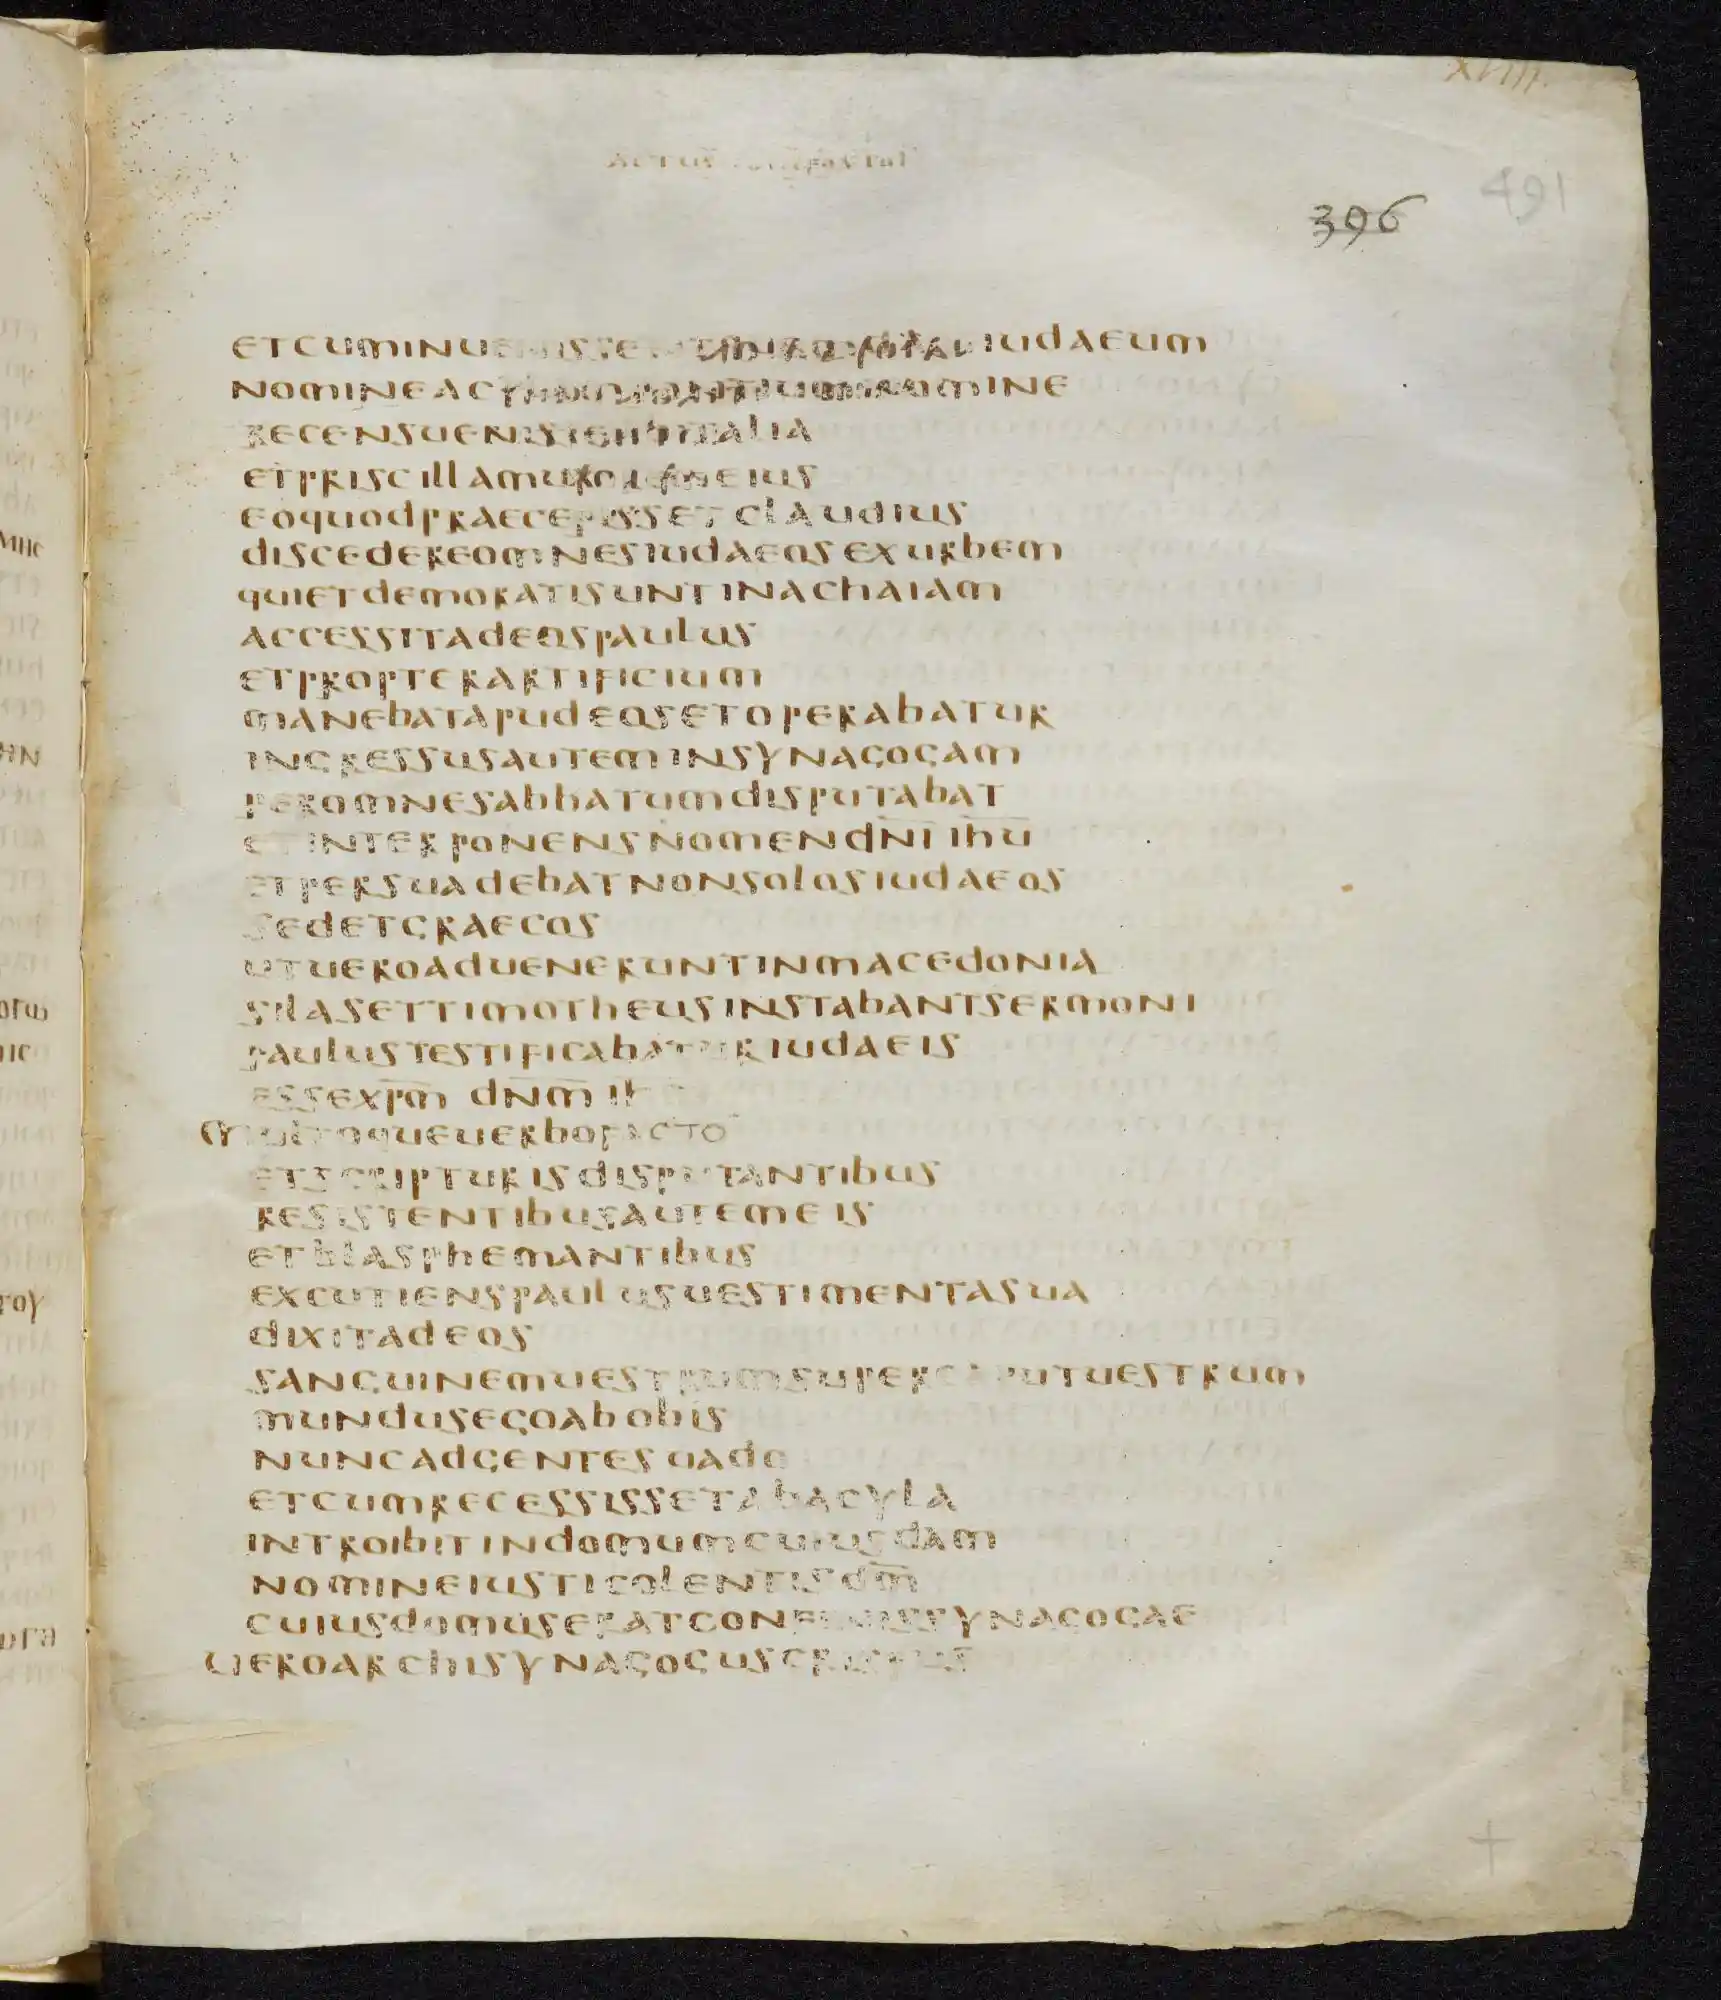 XVIII.
ACTUS
396
491
ETCUMINUENISSET IUDAEUM
NOMINEACYLAM PONTICUM NOMINE
RECENSUENISSEABITALIA
ETPRISCILLAMUXOREMEIUS
EOQUODPRAECEPISSETCLAUDIUS
DISCEDEREOMNESIUDAEOSEXURBEM
QUIETDEMORATISUNTINACHAIAM
ACCESSITADEOSPAULUS
ETPROPTERARTIFICIUM
MANEBATAPUDEOSETOPERABATUR
INGRESSUSAUTEMINSYNAGOGAM
PEROMNESABBATUMDISPUTABAT
ETINTERPONENSNOMENDN̅I̅ IH̅U̅
ETPERSUADEBATNONSOLOSIUDAEOS
SEDETGRAECOS
UTUEROADUENERUNTINMACEDONIA
SILASETTIMOTHEUSINSTABANTSERMONI
PAULUSTESTIFICABATURIUDAEIS
ESSEXPM̅ DN̅M̅ IH
MULTOQUEUERBOFACTO
ETSCRIPTURISDISPUTANTIBUS
RESISTENTIBUSAUTEMEIS
ETBLASPHEMANTIBUS
EXCUTIENSPAULUSUESTIMENTASUA
DIXITADEOS
SANGUINEMUESTRUMSUPERCAPUTUESTRUM
MUNDUSEGOABOBIS
NUNCADGENTESUADO
ETCUMRECESSISSETABACYLA
INTROIBITINDOMUMCUIUSDAM
NOMINEIUSTICOLENTISDM̅
CUIUSDOMUSERATCONFINISSYNAGOGAE
UEROARCHISYNAGOGUSCRISPUS